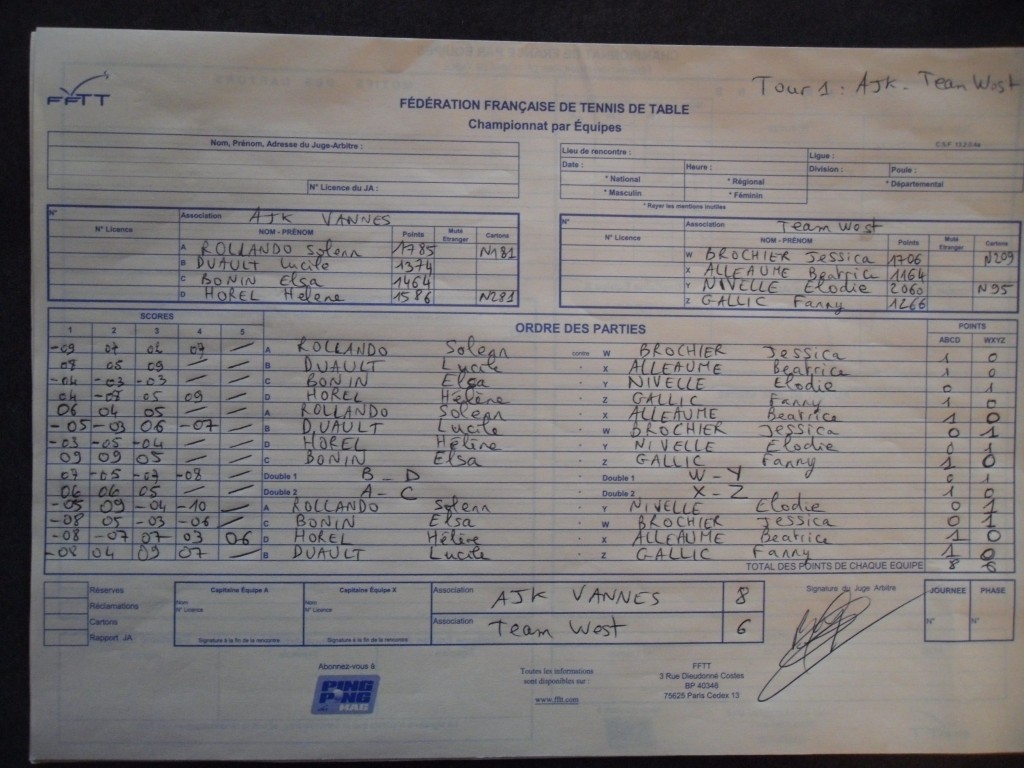 Tour 1 : AJK - Team West
FFTT
FÉDÉRATION FRANÇAISE DE TENNIS DE TABLE
Championnat par Équipes
Nom, Prénom, Adresse du Juge-Arbitre :
N° Licence du JA :
Lieu de rencontre : Ligue :
Date : Heure : Division : Poule :
* National * Régional * Départemental
* Masculin * Féminin
* Rayer les mentions inutiles
N° Association AJK VANNES
N° Licence NOM - PRÉNOM Points Muté Etranger Cartons
A ROLLANDO Solenn 1785 N181
B DUAULT Lucile 1374
C BONIN Elsa 1464
D HOREL Hélène 1586 N281
N° Association Team West
N° Licence NOM - PRÉNOM Points Muté Etranger Cartons
W BROCHIER Jessica 1706 N209
X ALLEAUME Béatrice 1164
Y NIVELLE Elodie 2060 N95
Z GALLIC Fanny 1266
SCORES ORDRE DES PARTIES POINTS
1 2 3 4 5 ABCD WXYZ
-09 07 02 07 / A ROLLANDO Solenn contre W BROCHIER Jessica 1 0
08 05 09 / / B DUAULT Lucile - X ALLEAUME Béatrice 1 0
-04 -03 -03 / / C BONIN Elsa - Y NIVELLE Elodie 0 1
04 -08 05 09 / D HOREL Hélène - Z GALLIC Fanny 1 0
06 04 05 / / A ROLLANDO Solenn - X ALLEAUME Béatrice 1 0
-05 -03 06 -07 / B DUAULT Lucile - W BROCHIER Jessica 0 1
-03 -05 -04 / / D HOREL Hélène - Y NIVELLE Elodie 0 1
09 09 05 / / C BONIN Elsa - Z GALLIC Fanny 1 0
07 -05 -07 -08 / Double 1 B - D - Double 1 W - Y 0 1
06 06 05 / / Double 2 A - C - Double 2 X - Z 1 0
-05 09 -04 -10 / A ROLLANDO Solenn - Y NIVELLE Elodie 0 1
-08 05 -03 -06 / C BONIN Elsa - W BROCHIER Jessica 0 1
-08 -07 07 03 06 D HOREL Hélène - X ALLEAUME Béatrice 1 0
-08 04 09 07 / B DUAULT Lucile - Z GALLIC Fanny 1 0
TOTAL DES POINTS DE CHAQUE EQUIPE 8 6
Réserves
Réclamations
Cartons
Rapport JA
Capitaine Équipe A
Nom
N° Licence
Signature à la fin de la rencontre
Capitaine Équipe X
Nom
N° Licence
Signature à la fin de la rencontre
Association AJK VANNES 8
Association Team West 6
Signature du Juge Arbitre
JOURNEE PHASE
N° N°
Abonnez-vous à
PING PONG MAG
Toutes les informations
sont disponibles sur :
www.fftt.com
FFTT
3 Rue Dieudonné Costes
BP 40348
75625 Paris Cedex 13